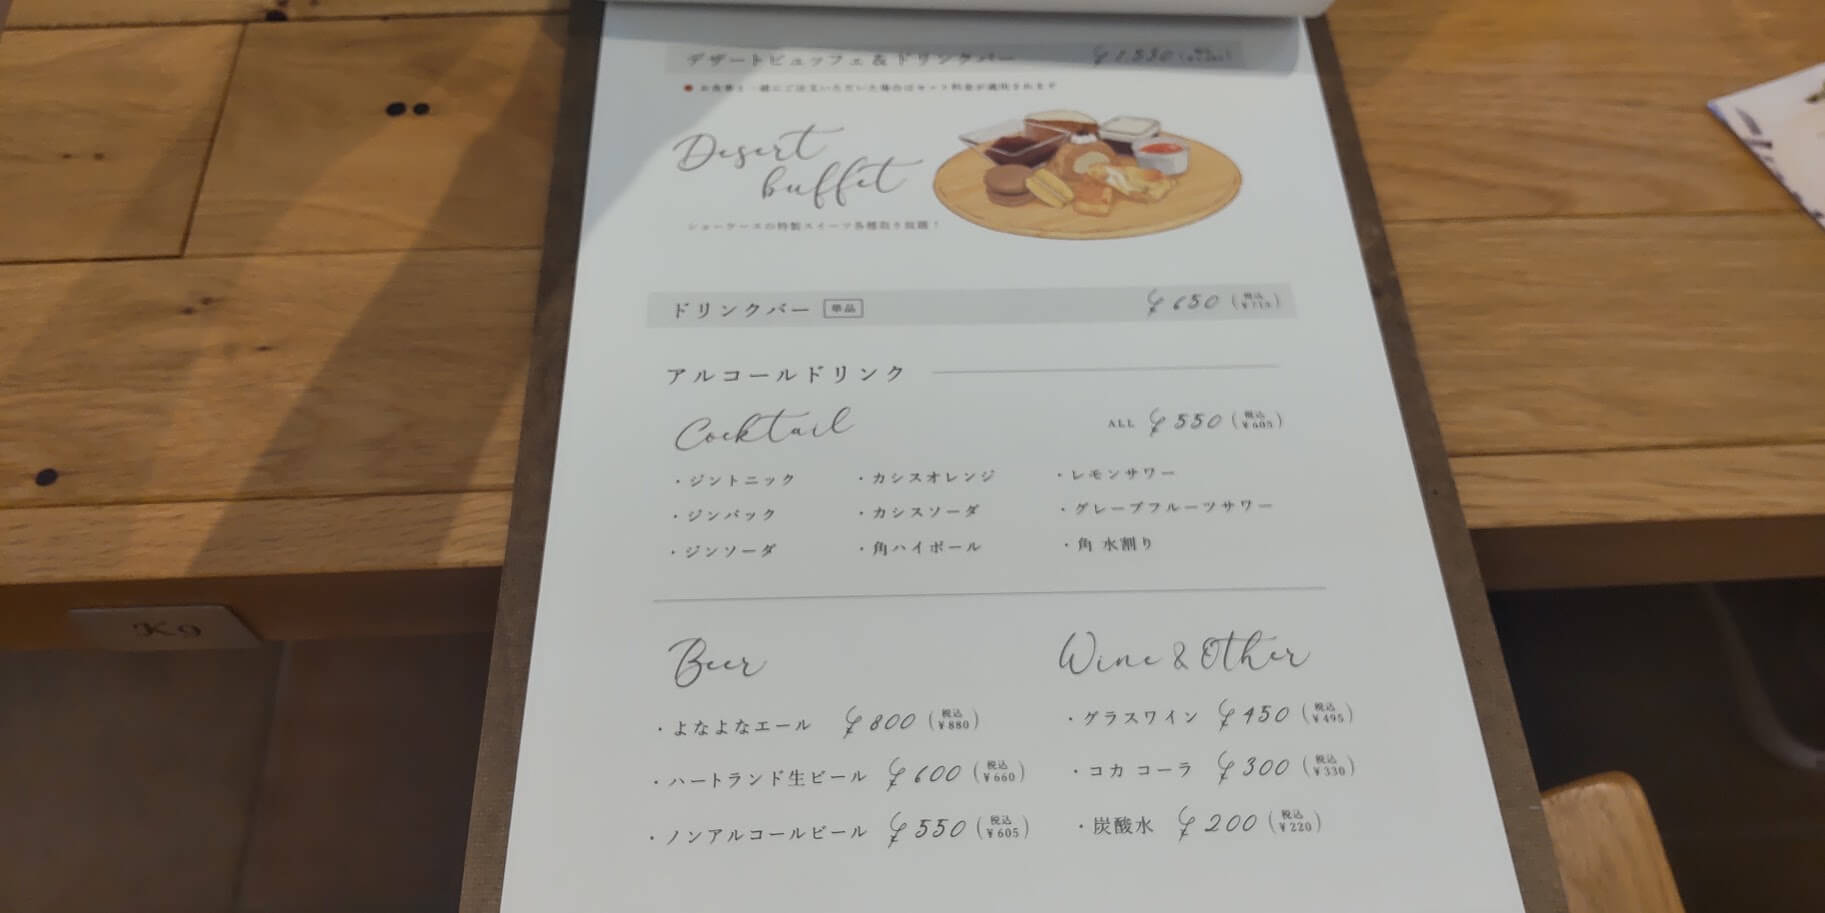 デザートビュッフェ＆ドリンクバー
● お食事と一緒にご注文いただいた場合はセット料金が適用されます
Desert
buffet
ショーケースの特製スイーツ各種取り放題！
ドリンクバー 単品 ¥650 (税込 ¥715)
アルコールドリンク
Cocktail ALL ¥550 (税込 ¥605)
・ジントニック ・カシスオレンジ ・レモンサワー
・ジンバック ・カシスソーダ ・グレープフルーツサワー
・ジンソーダ ・角ハイボール ・角 水割り
Beer
・よなよなエール ¥800 (税込 ¥880)
・ハートランド生ビール ¥600 (税込 ¥660)
・ノンアルコールビール ¥550 (税込 ¥605)
Wine & Other
・グラスワイン ¥450 (税込 ¥495)
・コカ コーラ ¥300 (税込 ¥330)
・炭酸水 ¥200 (税込 ¥220)
K9